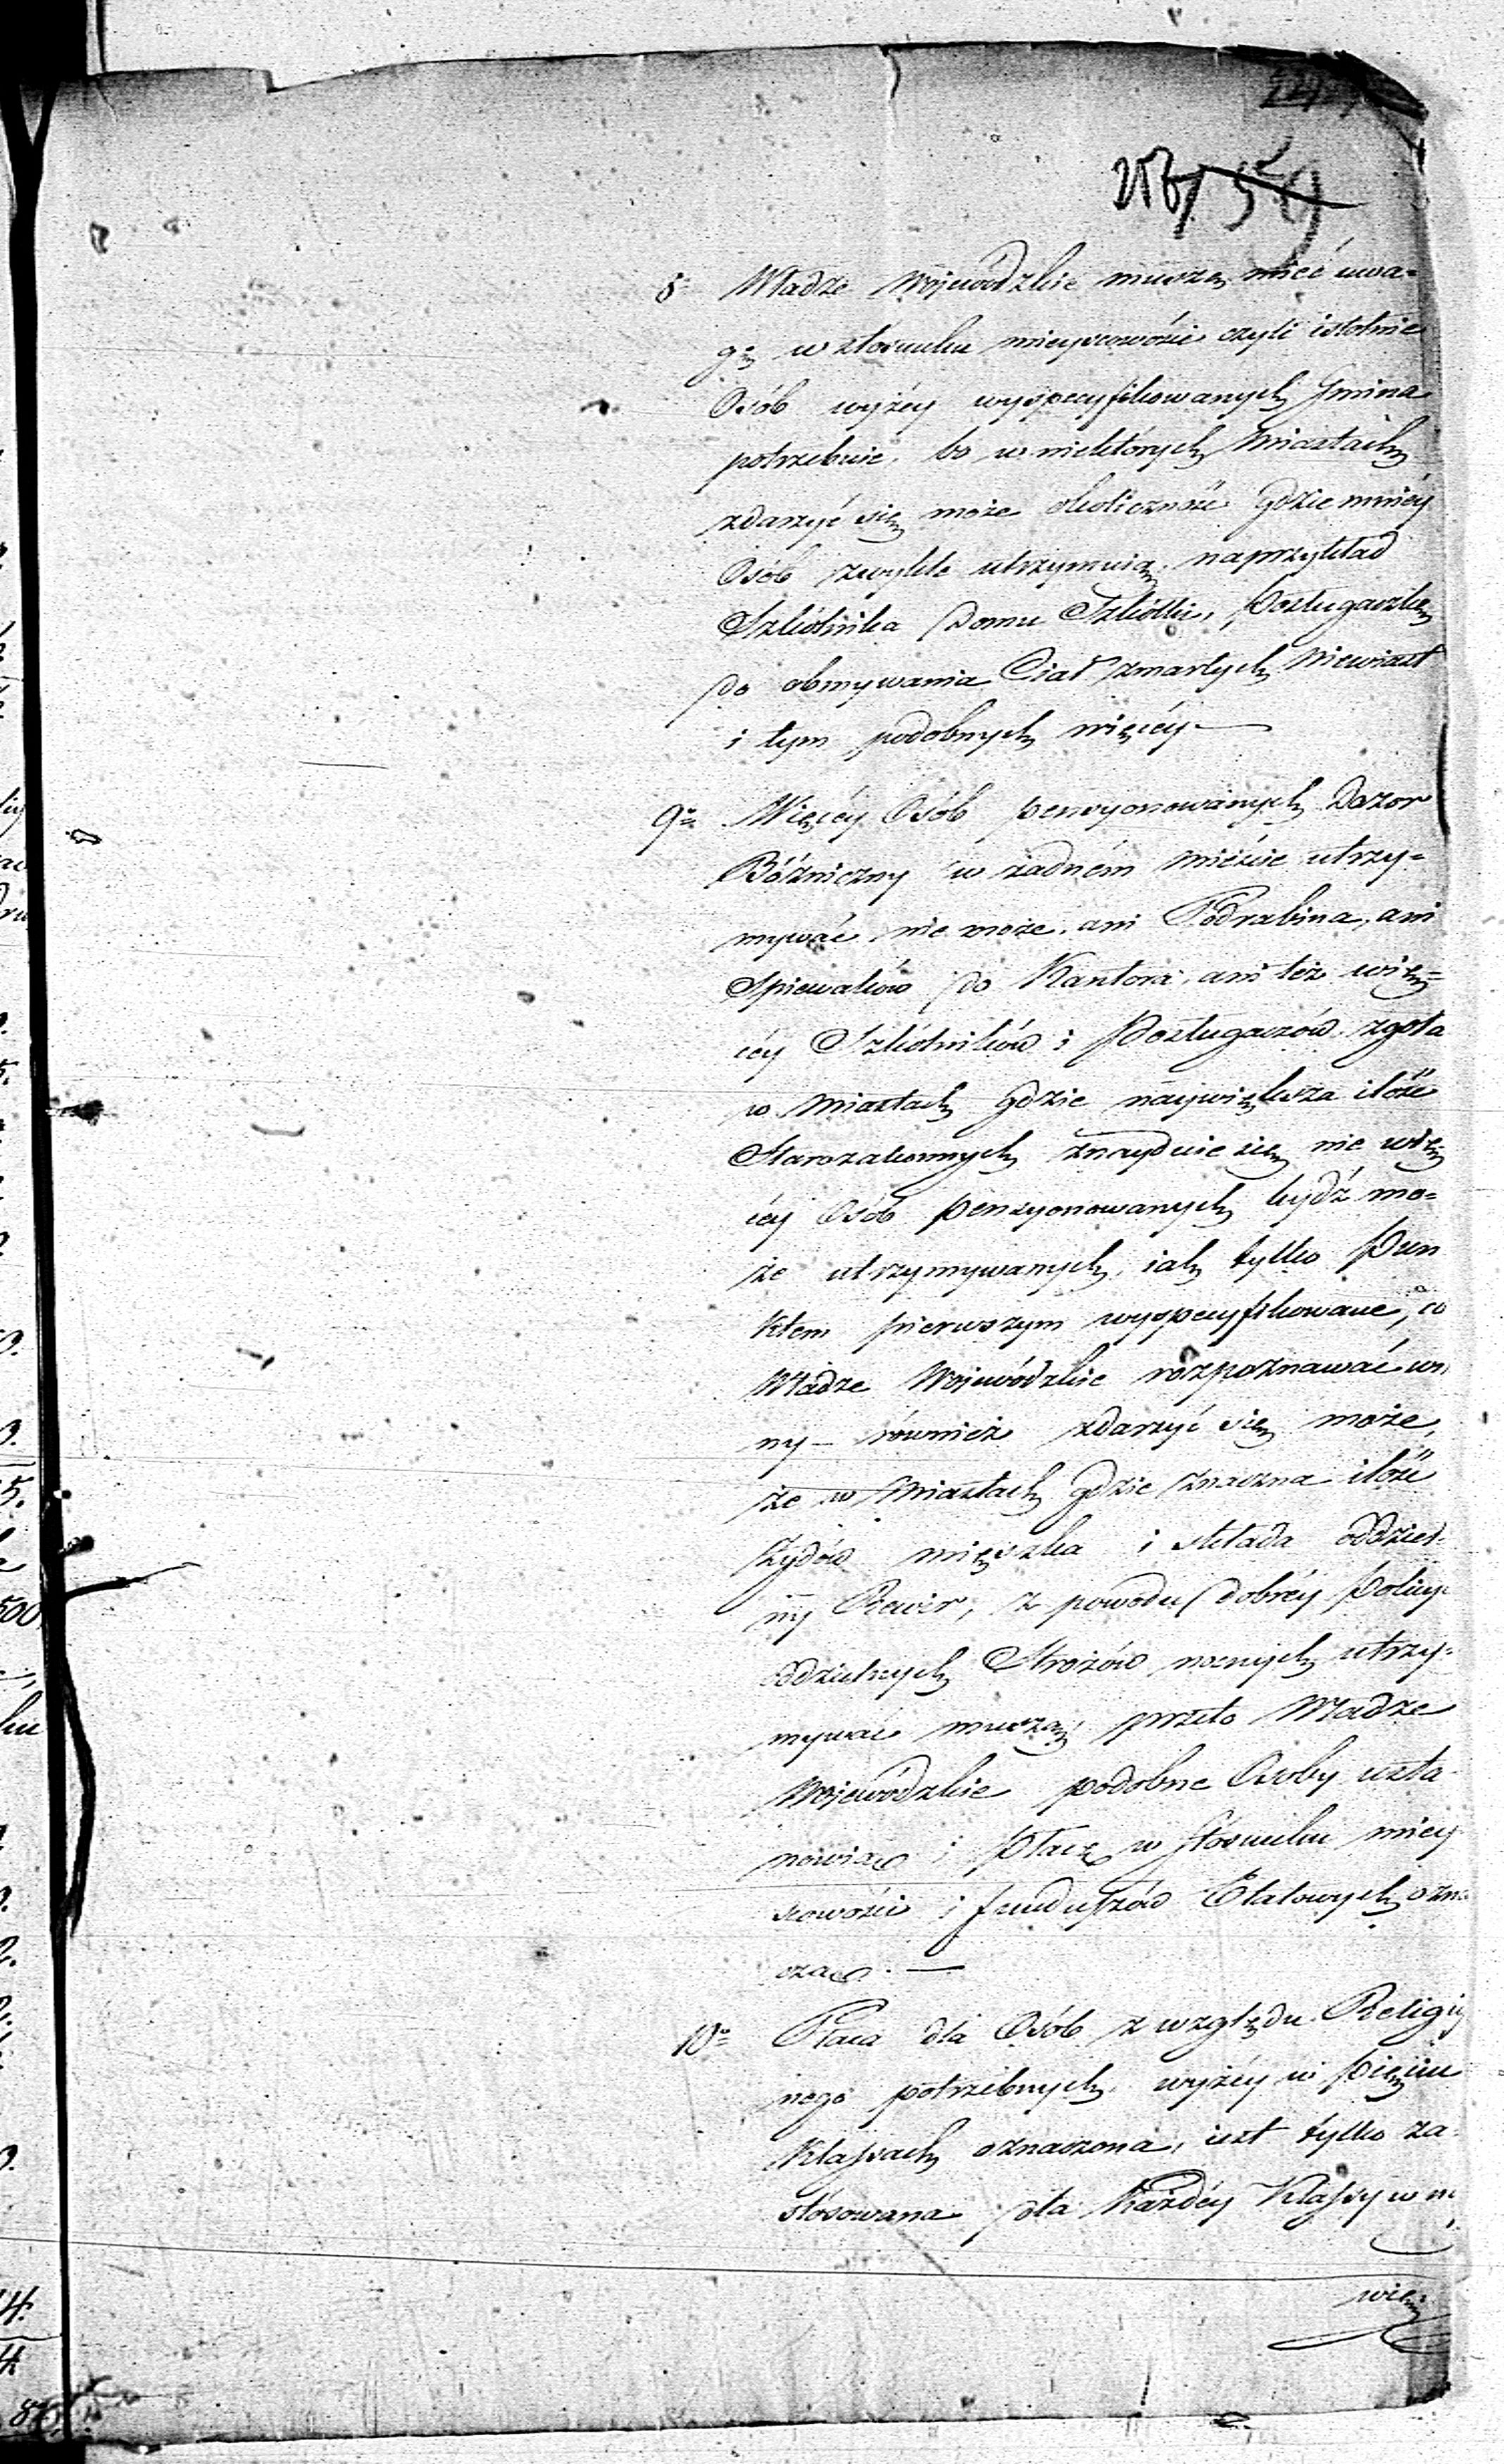 8º Władze Wojewódzkie muszą mieć uwa=
gę w stósunku mieyscowości czyli istotnie
Osób wyżéy wyspecyfikowanych Gmina
potrzebuie, bo w niektórych Miastach
zdarzyć się może okoliczność gdzie mniéy
Osób zwykle utrzymuią, naprzykład
Szkólnika Domu Szkólki, Posługaczkę
do obmywania Ciał zmarłych Niewiast
i tym podobnych więcéy —
9º Więcéy Osób pensyonowanych Dozor
Bóźniczny w żadném mieście utrzy=
mywać nie może, ani Podrabina, ani
Spiewaków do Kantora, ani też wię=
céy Szkólników i Posługaczów, zgoła
w Miastach gdzie naywiększa ilość
Starozakonnych znayduie się nie wię
céy Osób pensyonowanych bydź mo=
że utrzymywanych, iak tylko Pun
ktem pierwszym wyspecyfikowane, co
Władze Wojewódzkie rozpoznawać win
ny — również zdarzyć się może,
że w Miastach gdzie znaczna ilość
Żydów mięszka i składa oddziel=
ny Rewir, z powodu dobréy Policyi
oddzielnych Stróżów nocnych utrzy=
mywać muszą, przeto Władze
Wojewódzkie podobne Osoby usta
nowią i Płacę w stósunku miey
scowości i funduszów Etatowych ozn
czą. —
10º Płaca dla Osób z względu Religiy
nego potrzebnych, wyżéy w Pięciu
Klassach oznaczona, iest tylko za
stósowana dla Każdéy Klassy w
wię